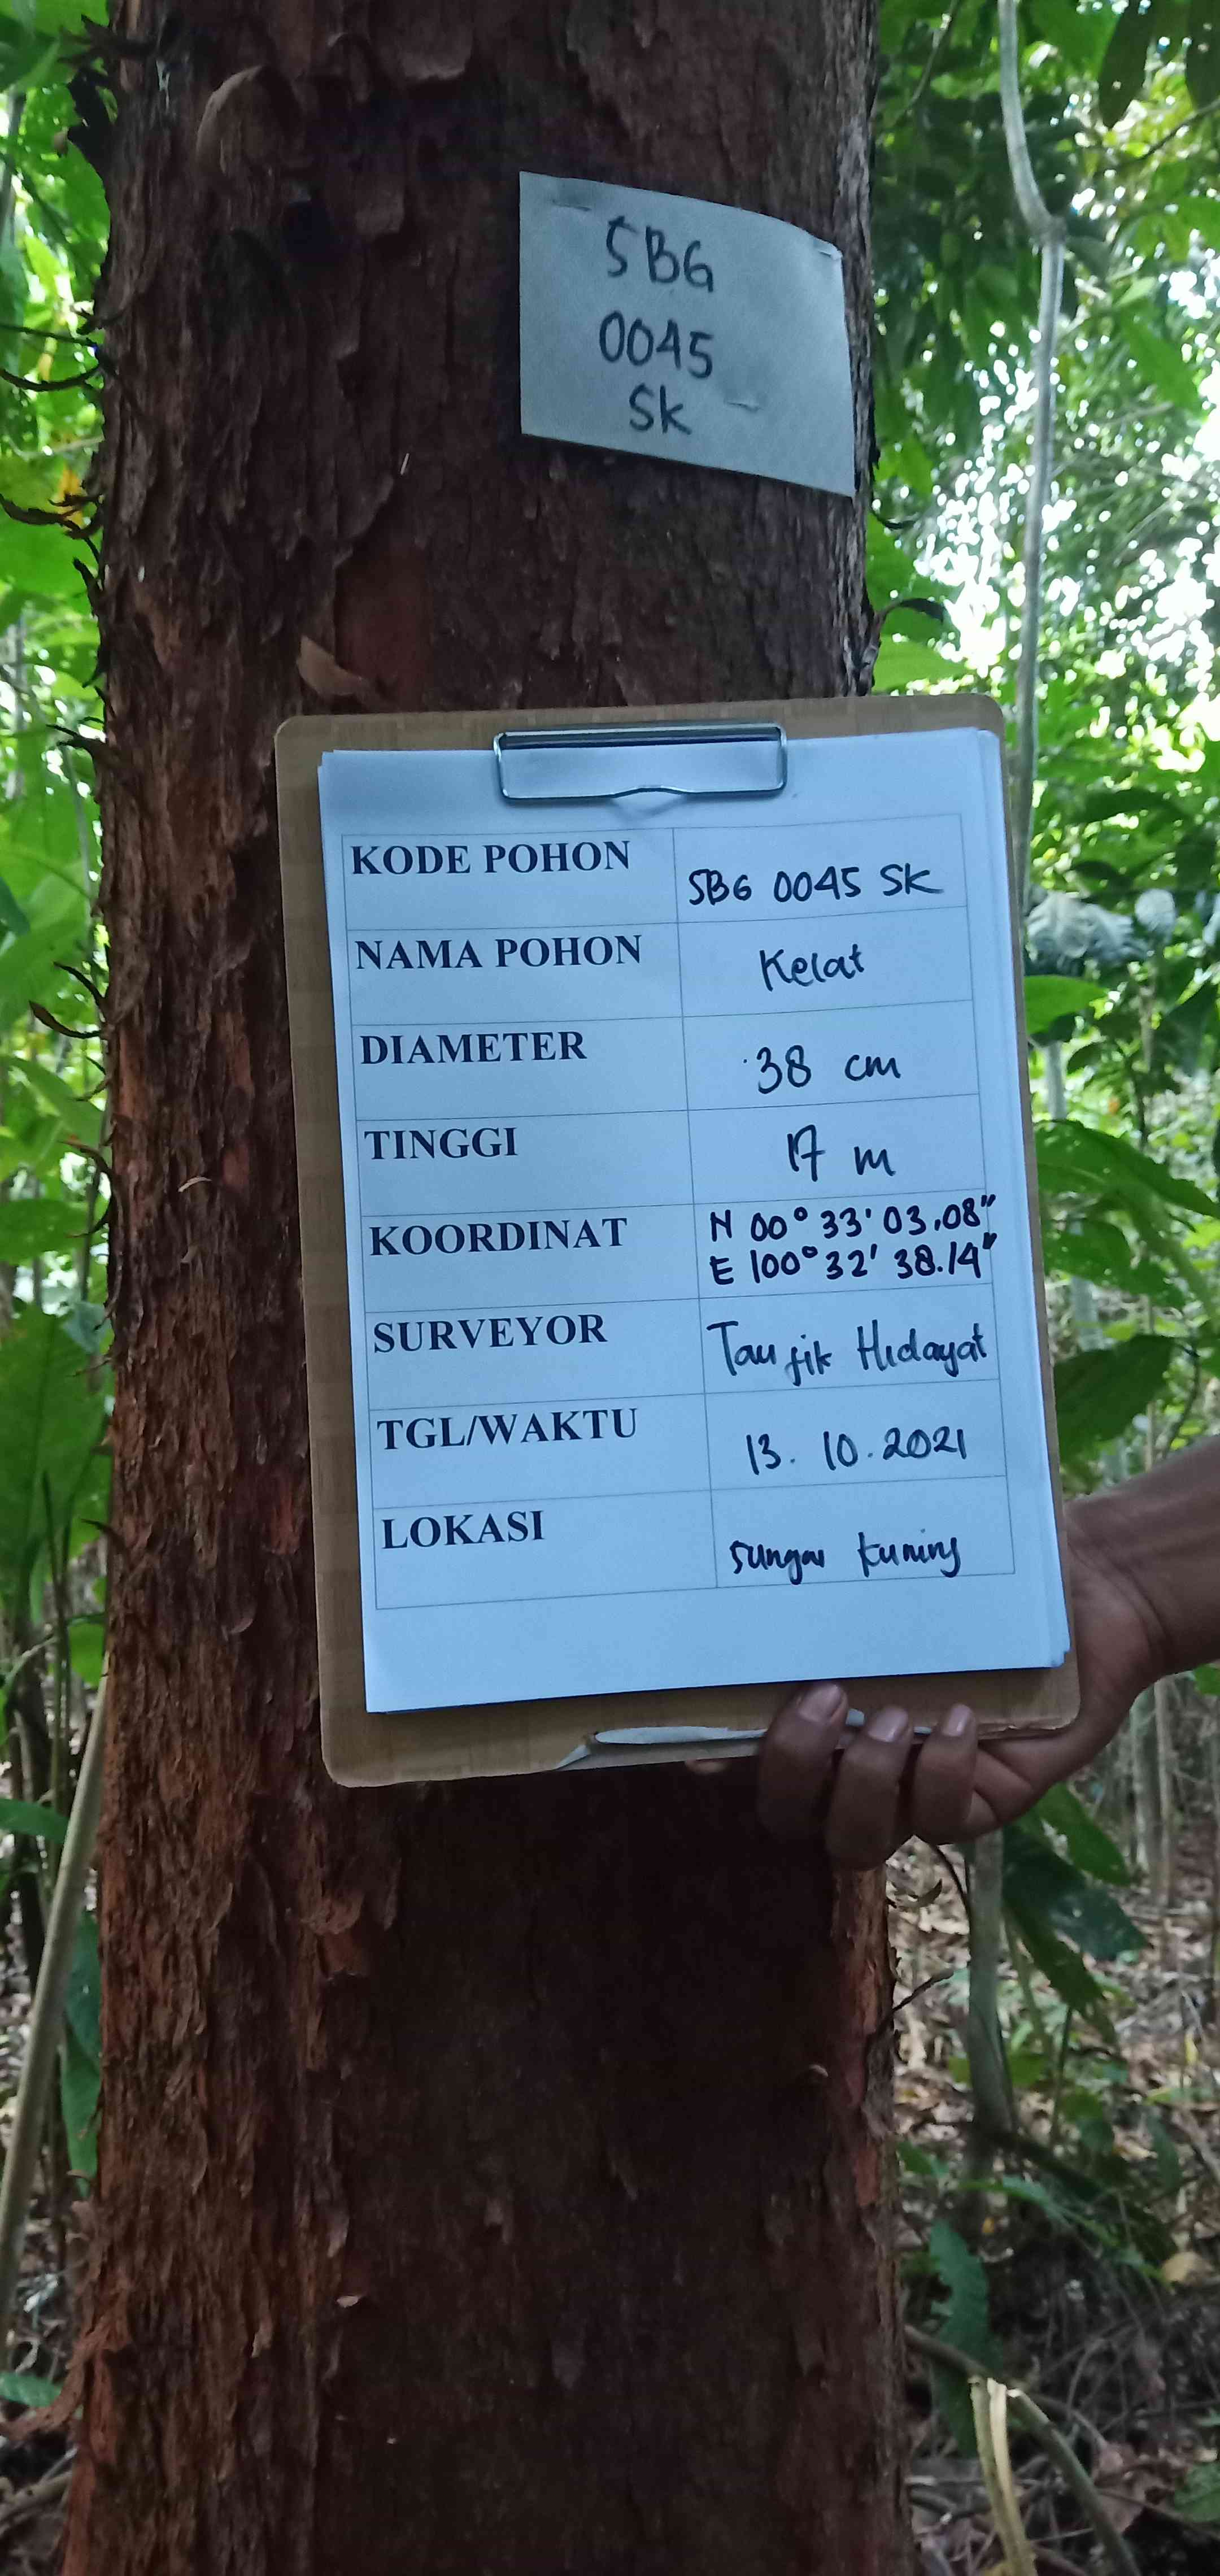 SBG
0045
Sk
KODE POHON
SBG 0045 SK
NAMA POHON
Kelat
DIAMETER
38 cm
TINGGI
17 m
KOORDINAT
N 00° 33' 03,08"
E 100° 32' 38.14"
SURVEYOR
Taufik Hidayat
TGL/WAKTU
13. 10. 2021
LOKASI
sungai kuning